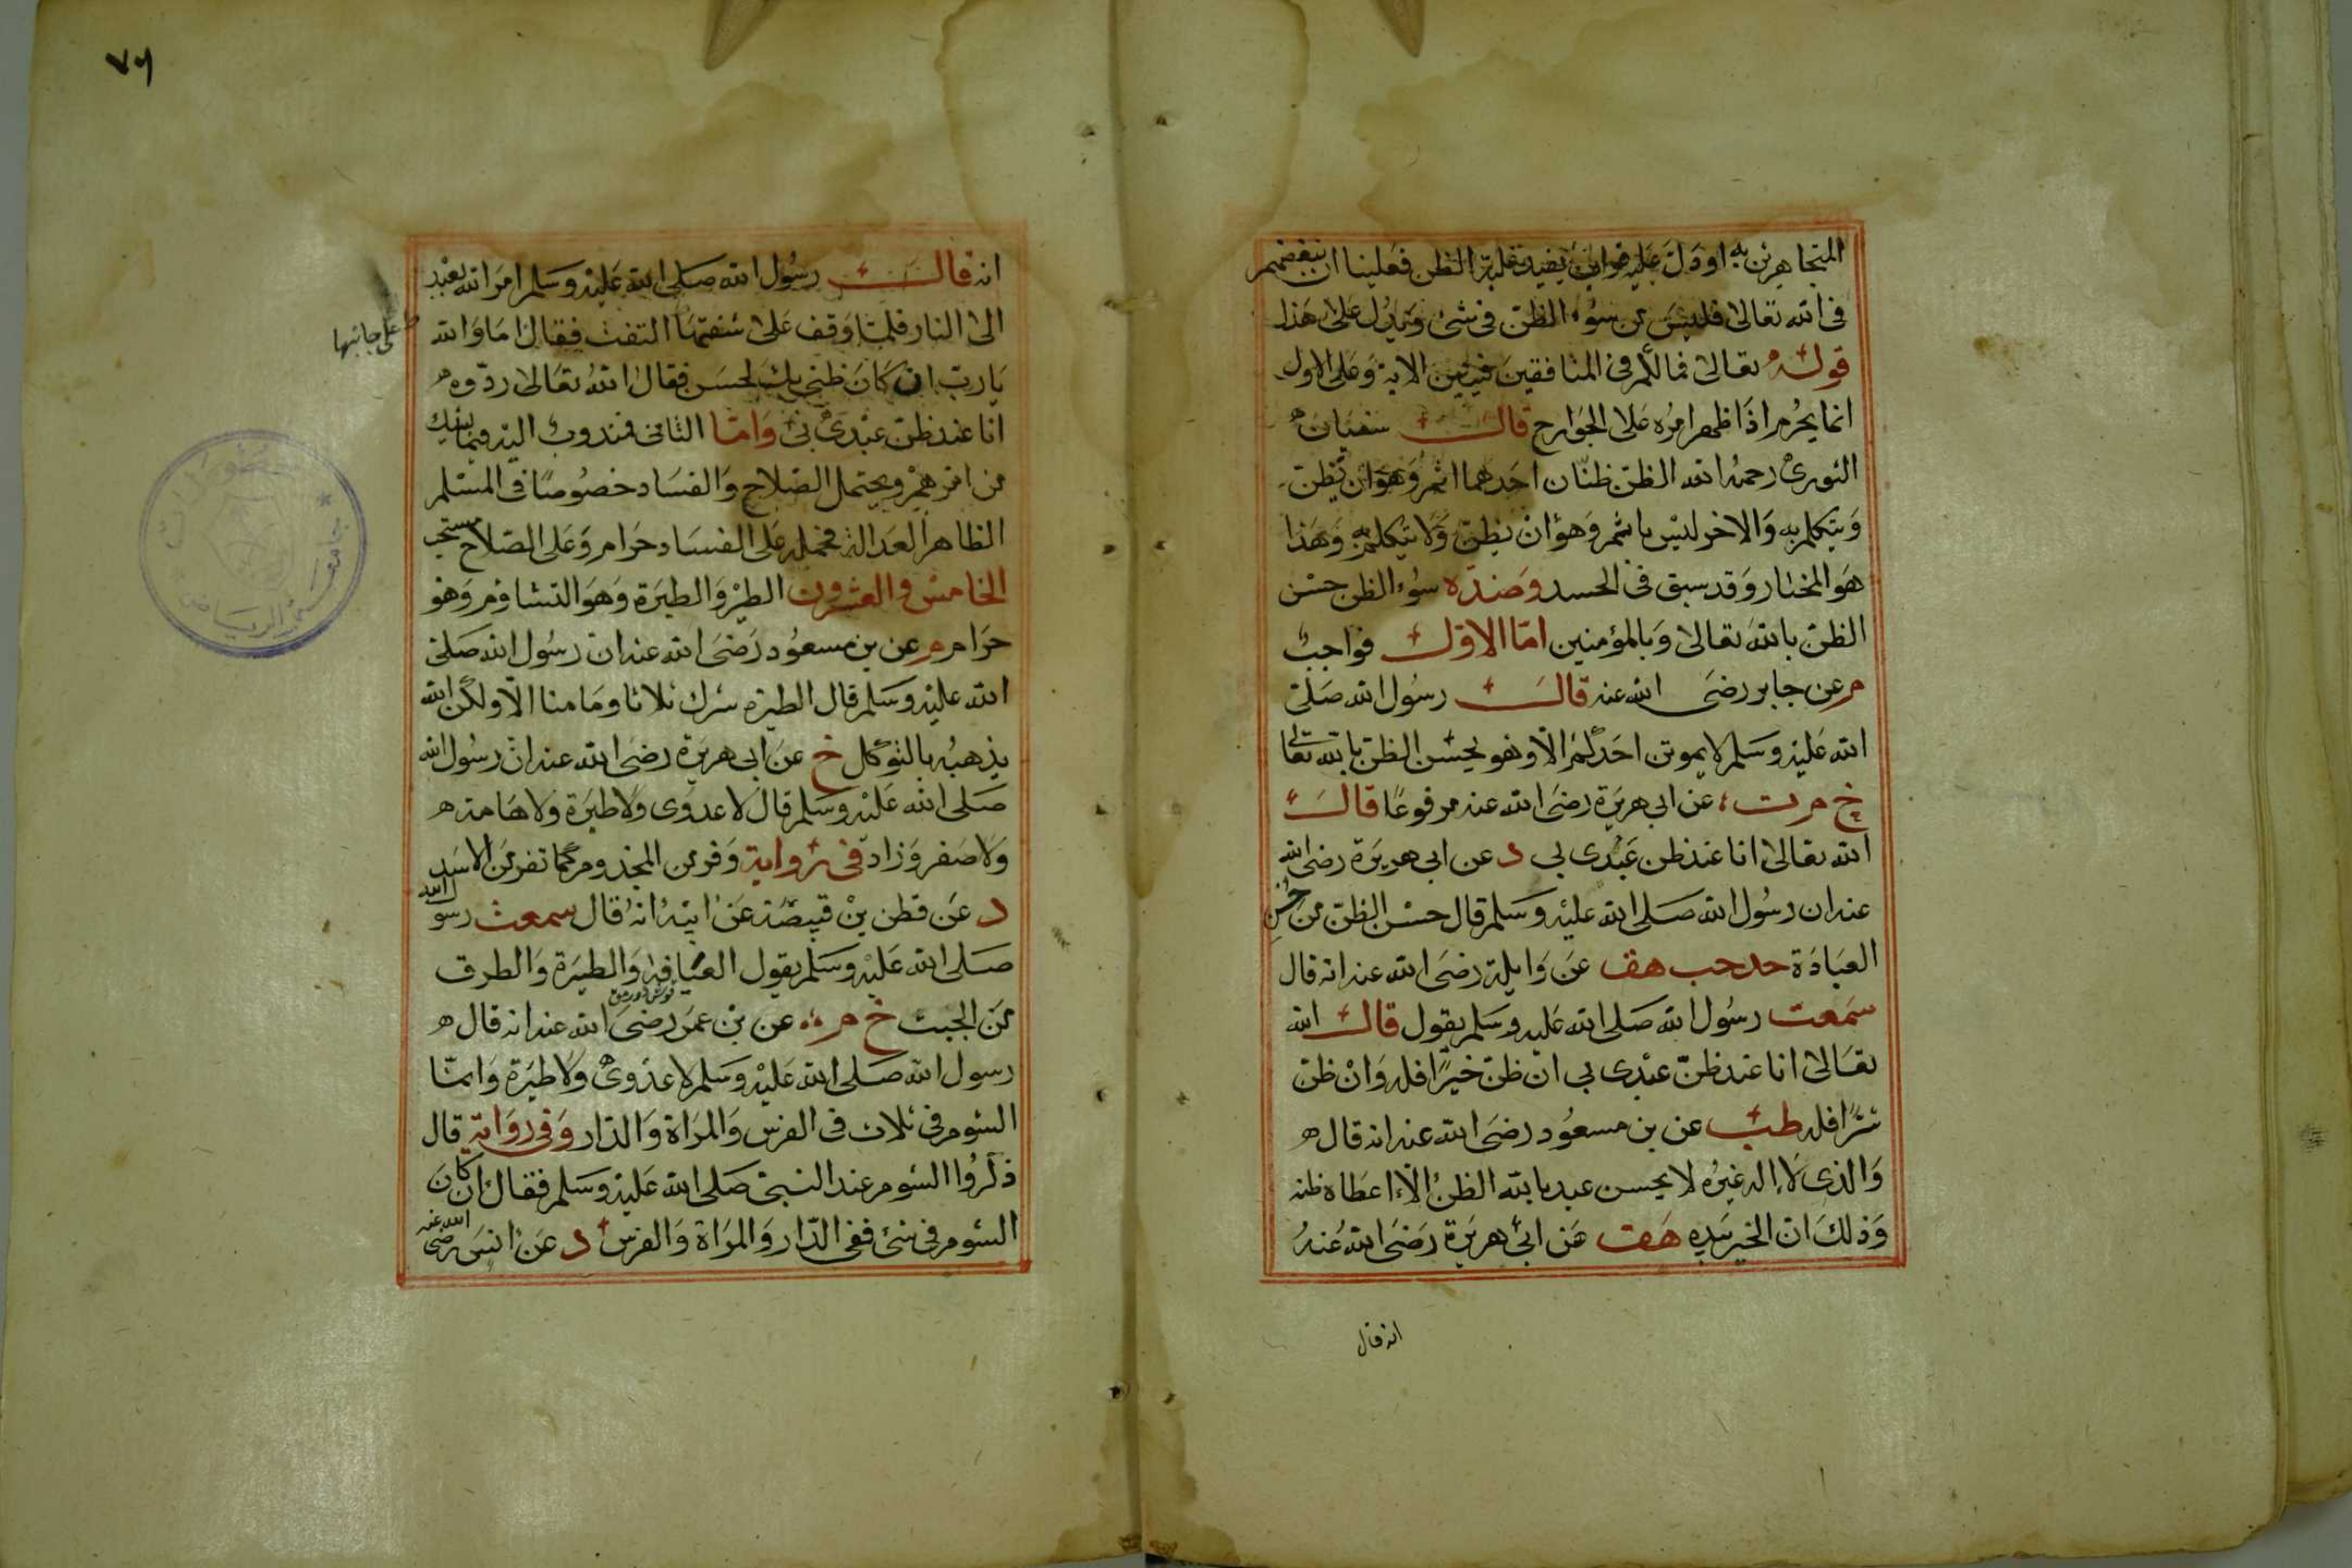 المتجاهرين به او دل عليه قراين يفيد غلبة الظن فعلينا ان نبغضهم
فى الله تعالى فليس من سوء الظن فى شئ ويدل على هذا
قوله تعالى فمالكم فى المنافقين فئتين الاية وعلى الاول
انما يحرم اذا ظهر امره على الجوارح قال سفيان
الثورى رحمه الله الظن ظنان احدهما اثم وهو ان يظن
ويتكلم به والاخر ليس باثم وهو ان يظن ولا يتكلم به وهذا
هو المختار وقد سبق فى الحسد وضده سوء الظن حسن
الظن بالله تعالى وبالمؤمنين اما الاول فواجب
م عن جابر رضى الله عنه قال رسول الله صلى
الله عليه وسلم لا يموتن احدكم الا وهو يحسن الظن بالله تعالى
خ م ت عن ابى هريرة رضى الله عنه مرفوعا قال
الله تعالى انا عند ظن عبدى بى د عن ابى هريرة رضى الله
عنه ان رسول الله صلى الله عليه وسلم قال حسن الظن من حسن
العبادة حد حب هق عن واىلة رضى الله عنه انه قال
سمعت رسول الله صلى الله عليه وسلم يقول قال الله
تعالى انا عند ظن عبدى بى ان ظن خيرا فله وان ظن
شرا فله طب عن بن مسعود رضى الله عنه انه قال
والذى لا اله غيره لا يحسن عبد بالله الظن الا اعطاه ظنه
وذلك ان الخير بيده هق عن ابى هريرة رضى الله عنه
انه قال
٧٦
انه قال رسول الله صلى الله عليه وسلم امر الله بعبد
الى النار فلما وقف على شفتها التفت فقال اما والله
على جانبها
يا رب ان كان ظنى بك لحسن فقال الله تعالى ردوه
انا عند ظن عبدى بى واما الثانى فمندوب اليه فيما يشك
من امرهم ويحتمل الصلاح والفساد خصوصا فى المسلم
الظاهر العدالة فحمله على الفساد حرام وعلى الصلاح مستحب
الخامس والعشرون الطير والطيرة وهو التشاؤم وهو
حرام م عن بن مسعود رضى الله عنه ان رسول الله صلى
الله عليه وسلم قال الطيرة شرك ثلاثا وما منا الا ولكن الله
يذهبه بالتوكل خ عن ابى هريرة رضى الله عنه ان رسول الله
صلى الله عليه وسلم قال لا عدوى ولا طيرة ولا هامة
ولا صفر وزاد فى رواية وفر من المجذوم كما تفر من الاسد
د عن قطن بن قبيصة عن ابيه انه قال سمعت رسول الله
صلى الله عليه وسلم يقول العيافة والطيرة والطرق
من الجبت خ م عن بن عمر رضى الله عنه انه قال
رسول الله صلى الله عليه وسلم لا عدوى ولا طيرة وانما
الشوم فى ثلاث فى الفرس والمراة والدار وفى رواية قال
ذكروا الشوم عند النبى صلى الله عليه وسلم فقال ان كان
الشوم فى شئ ففى الدار والمراة والفرس د عن انس رضى الله عنه